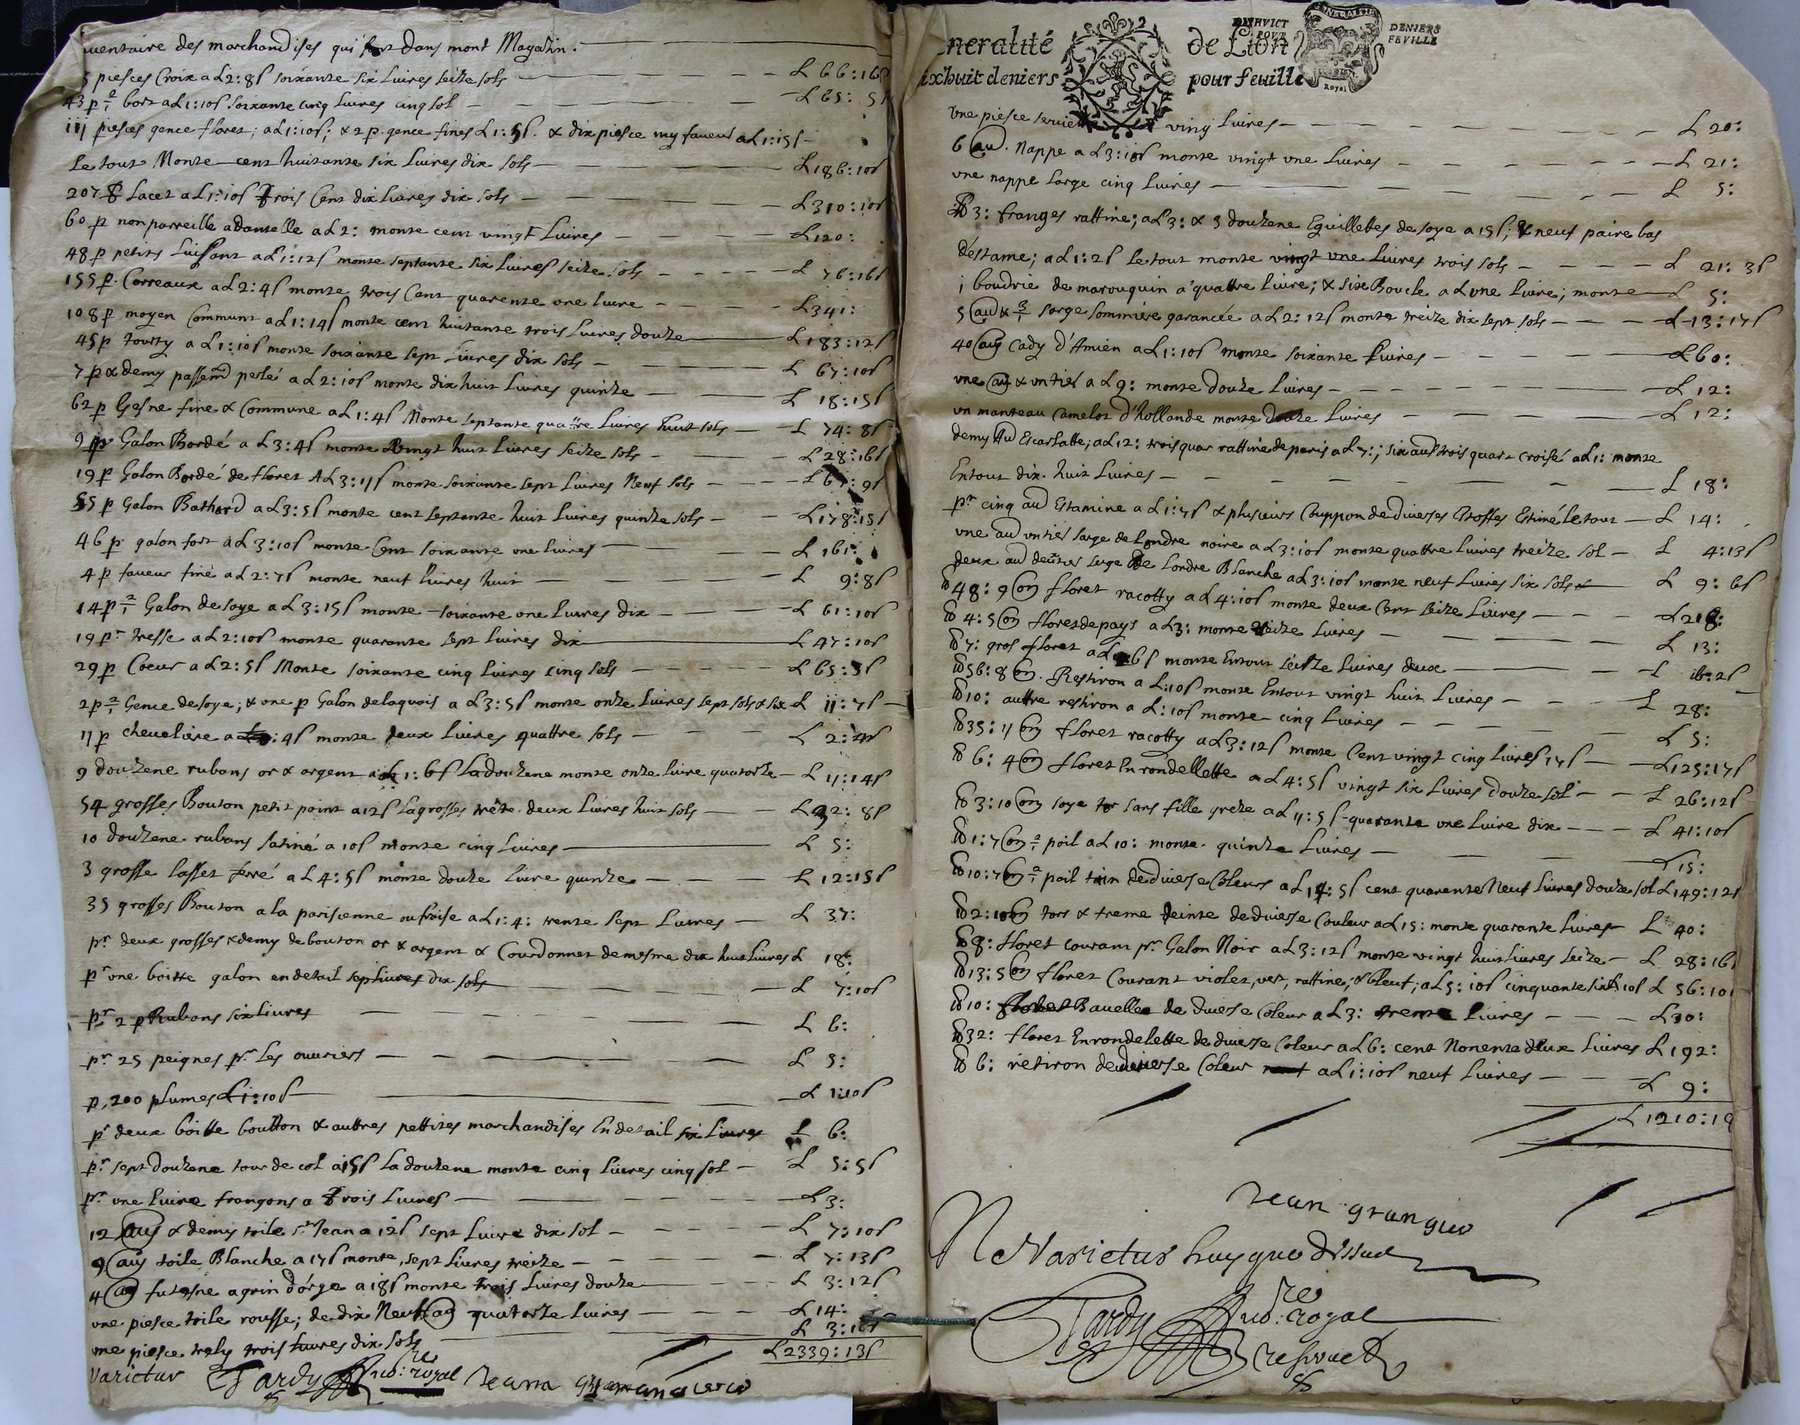 inventaire des marchandises qui sont dans mont Magazin.
pieces Croix a L2:8s soixante six Livres seize sols L66:16s
43 p 2/1 bort a L1:10s soixante cinq Livres cinq sol L65:5s
iii pieces gence floret; a L1:10s; & 2 p. gence fines L1:5s. & dix piesce my faveur a L1:15s
Le tout Monte cent huitante six Livres dix sols L186:10s
207 Lacet a L1:10s trois Cent dix Livres dix sols L310:10s
60 p nonparreille adantelle a L2: monte cent vingt Livres L120:
48 p petits Luisant a L1:12s monte septante six Livres seize sols L76:16s
155 p. Carreaux a L2:4s monte trois Cent quarente une livre L341:
108 p moyen Commun a L1:14s monte cent huitante trois Livres douze L183:12s
45 p tourty a L1:10s monte soixante sept Livres dix sols L67:10s
7 p & demy passem perlé a L2:10s monte dix huit Livres quinze L18:15s
62 p Gesne fine & Commune a L1:4s Monte septante quattre Livres huit sols L74:8s
9 p Galon Bordé a L3:4s monte vingt huit Livres seize sols L28:16s
19 p Galon Bordé de floret a L3:11s monte soixante sept Livres Neuf sols L67:9s
55 p Galon Bathard a L3:5s monte cent septante huit Livres quinze sols L178:15s
46 p galon fort a L3:10s monte Cent soixante une livres L161:
4 p faveur fine a L2:7s monte neuf Livres huit L9:8s
14 p 2/1 Galon de soye a L3:15s monte soixante une Livres dix L61:10s
19 pr tresse a L2:10s monte quarante sept Livres dix L47:10s
29 p Coeur a L2:5s Monte soixante cinq Livres cinq sols L65:5s
2 p 2/1 Gence de soye; & une p Galon delaquois a L3:5s monte onze Livres sept sols & six L11:7s
11 p chevaliere a :4s monte deux Livres quattre sols L2:4s
9 douzene rubans or & argent a L1:6s La douzene monte onze livre quatorze L11:14s
54 grosses Bouton petit point a 12s La grosses trente deux Livres huit sols L32:8s
10 douzene rubans satiné a 10s monte cinq Livres L5:
3 grosse lasset ferré a L4:5s monte douze livre quinze L12:15s
35 grosses Bouton a la parisienne a L1:4: trente sept Livres L37:
pr deux grosses & demy de bouton or & argent & Courdonnet de mesme dix huit Livres L18:
pr une boitte galon en detail sept Livres dix sols L7:10s
pr 2 p Rubans six Livres L6:
pr 25 peignes pr Les ouvriers L5:
p. 200 plumes L1:10s L1:10s
pr deux boitte boutton & auttres pettites marchandises En detail six Livres L6:
pr sept douzene tour de col a 15s La douzene monte cinq Livres cinq sol L5:5s
pr une livre frangons a trois Livres L3:
12 aus & demy toile St Jean a 12s sept Livre dix sol L7:10s
9 aus toile Blanche a 17s monte, sept Livres treize L7:13s
4 au futesne a grin d'orge a 18s monte trois Livres douze L3:12s
une piesce toile rousse; de dix Neuf au quatorze Livres L14:
une piesce trois Livres dix sols L3:10s
L2339:13s
Varietur Tardy Jud: re royal
neralité de Lion
ixhuit deniers pour feuille
GENERALITE
DENIERS
FEVILLE
Royal
une piesce vingt Livres L20:
6 au. Nappe a L3:10s monte vingt une Livres L21:
une nappe Large cinq Livres L5:
3: franges rattine; a L3: & 3 douzene Eguillettes de soye a 15s; & neuf paire bas
destame; a L1:2s Le tout monte vingt une Livres trois sols L21:3s
1 boudrie de marouquin a quattre Livre; & six Boucle a L une Livre; monte L5:
5 au & sarge sommiére garancée a L2:12s monte treize dix sept sols L13:17s
40 au Cady d'Amien a L1:10s monte soixante Livres L60:
une au & un tier a L9: monte douze Livres L12:
un manteau Camelot d'hollande monte douze Livres L12:
demy au Escarlatte; a L12: trois quar rattine de paris a L7:; six aud trois quart Croisé a L1: monte
Entout dix huit Livres L18:
pr cinq aud Etamine a L1:7s & plusieurs Couppon de diverses Etoffes Estimé le tout L14:
une aud un tier sarge de Londre noire a L3:10s monte quattre Livres treize sol L4:13s
deux aud de Londre Blanche a L3:10s monte neuf Livres six sols L9:6s
48:9 on floret racotty a L4:10s monte deux Cent seize Livres L216:
4:5 on floret de pays a L3: monte treize Livres L13:
7: gros floret monte Entout seitze Livres deux L16:2s
56:8 on. Restiron a L:10s monte Entout vingt huit Livres L28:
10: auttre restiron a L:10s monte cinq Livres L5:
35:11 on floret racotty a L3:12s monte Cent vingt cinq Livres 17s L125:17s
6:4 on floret En rondellette a L4:5s vingt six Livres douze sol L26:12s
3:10 on soye tor sans fille greze a L11:5s quarante une Livre dix L41:10s
1:7 on 2/1 poil a L10: monte quinze Livres L15:
10:7 on 2/1 poil de diverse Coleurs a L14:5s cent quarente Neuf Livres douze sol L149:12s
2:10 on tors & treme teinte de diverse Couleur a L15: monte quarante Livres L40:
8: floret courant pr. Galon Noir a L3:12s monte vingt huit Livres seize L28:16s
13:5 on floret Courant violet, ver, rattine, & bleuf, a L5:10s cinquante six L 10s L56:10s
10: Bauelle de diverse Coleur a L3: trente Livres L30:
32: floret En rondelette de diverse Coleur a L6: cent Nonente deux Livres L192:
6: retiron de diverse Coleur a L1:10s neuf Livres L9:
L1210:19
Jean grangier
Ne Varietur huy que dessus
Tardy Jud: re royal